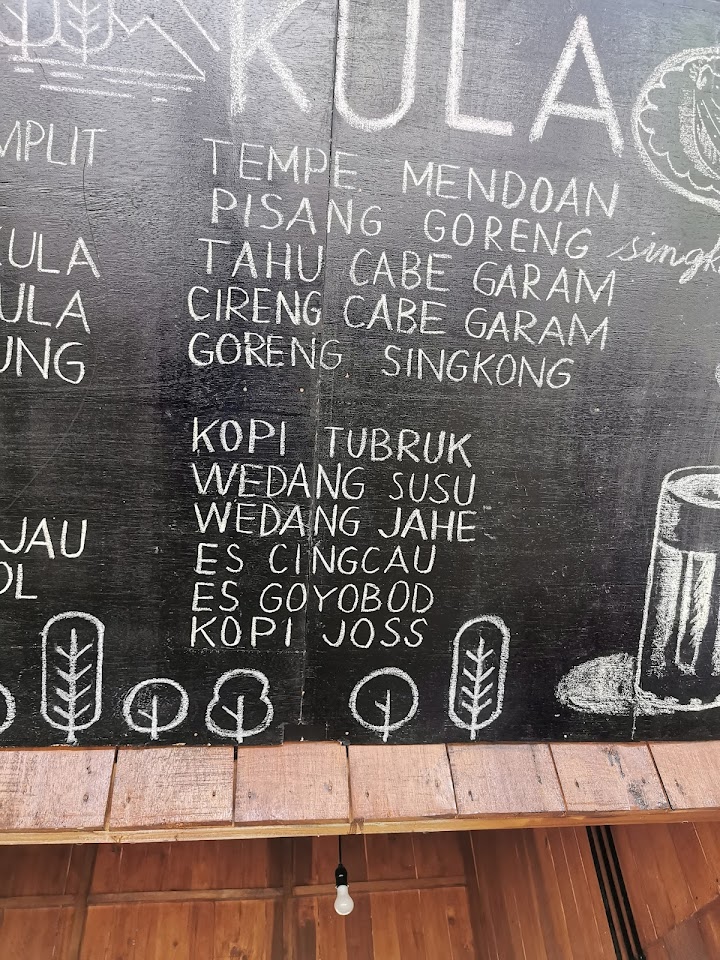 KULA
MPLIT
KULA
ULA
UNG
JAU
OL
TEMPE MENDOAN
PISANG GORENG
TAHU CABE GARAM
CIRENG CABE GARAM
GORENG SINGKONG
KOPI TUBRUK
WEDANG SUSU
WEDANG JAHE
ES CINGCAU
ES GOYOBOD
KOPI JOSS
singk